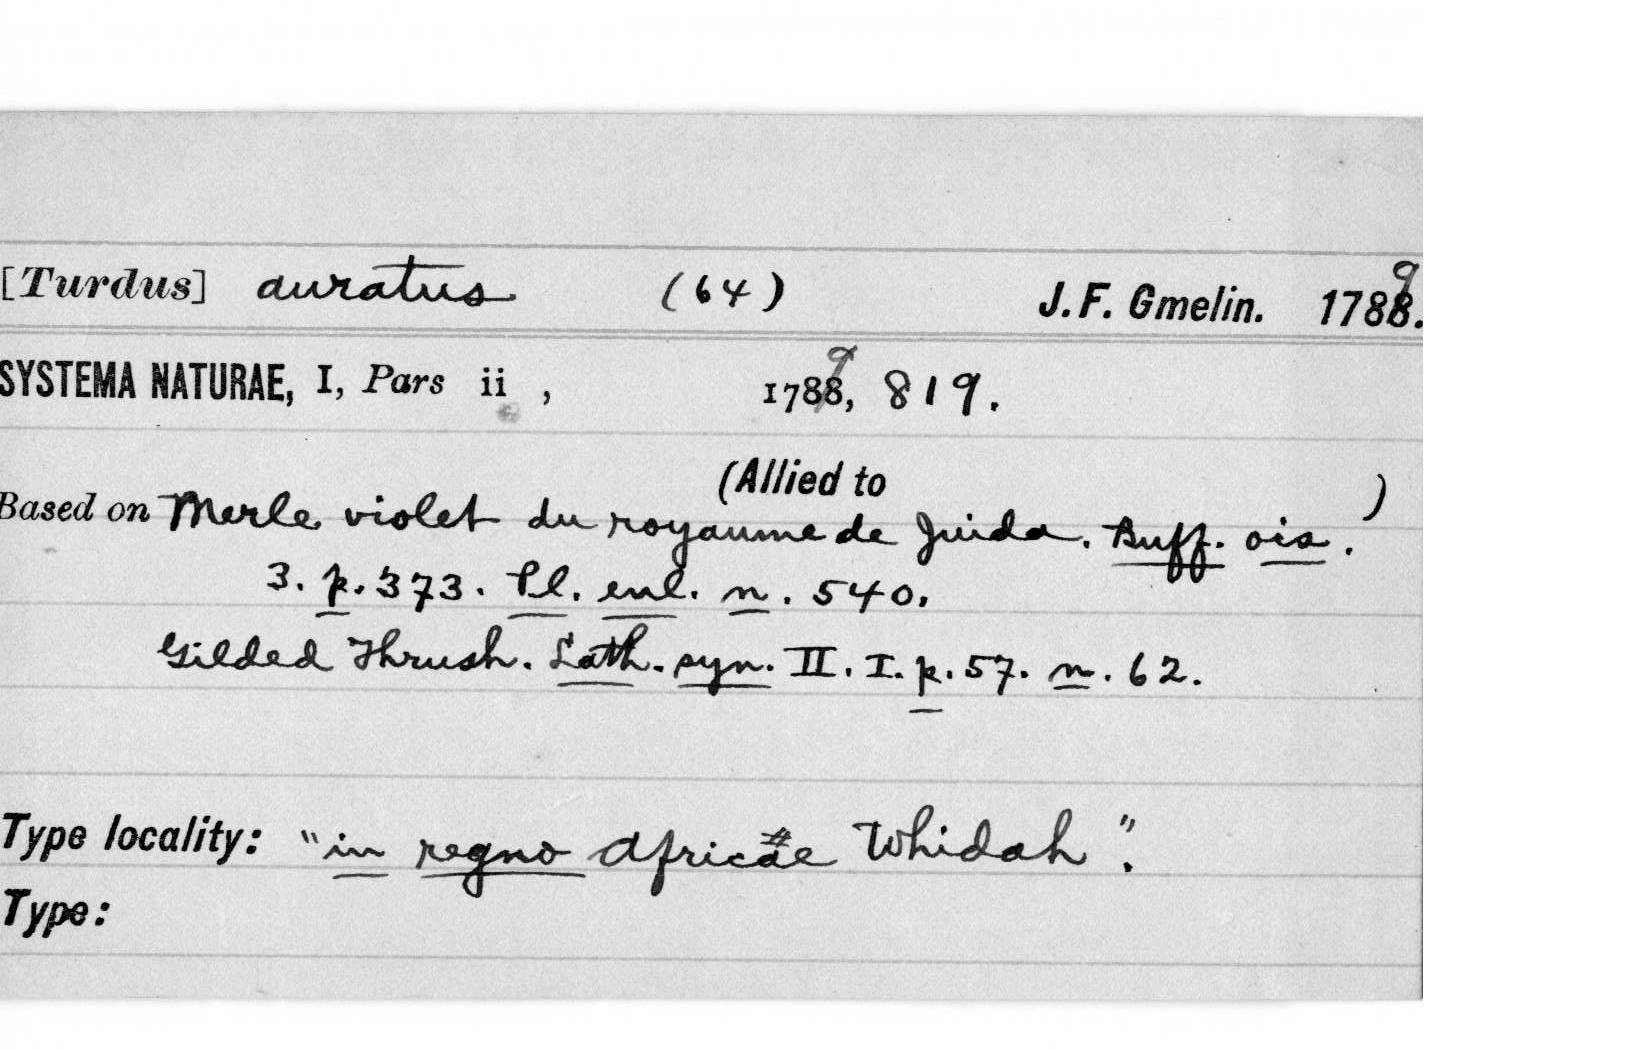 [Turdus] auratus (64) J. F. Gmelin. 1789.
SYSTEMA NATURAE, I, Pars ii, 1789, 819.
(Allied to )
Based on Merle violet du royaume de Juida. Buff. ois.
3. p. 373. Pl. enl. n. 540.
Gilded Thrush. Lath. syn. II. I. p. 57. n. 62.
Type locality: "in regno Africae Whidah".
Type: